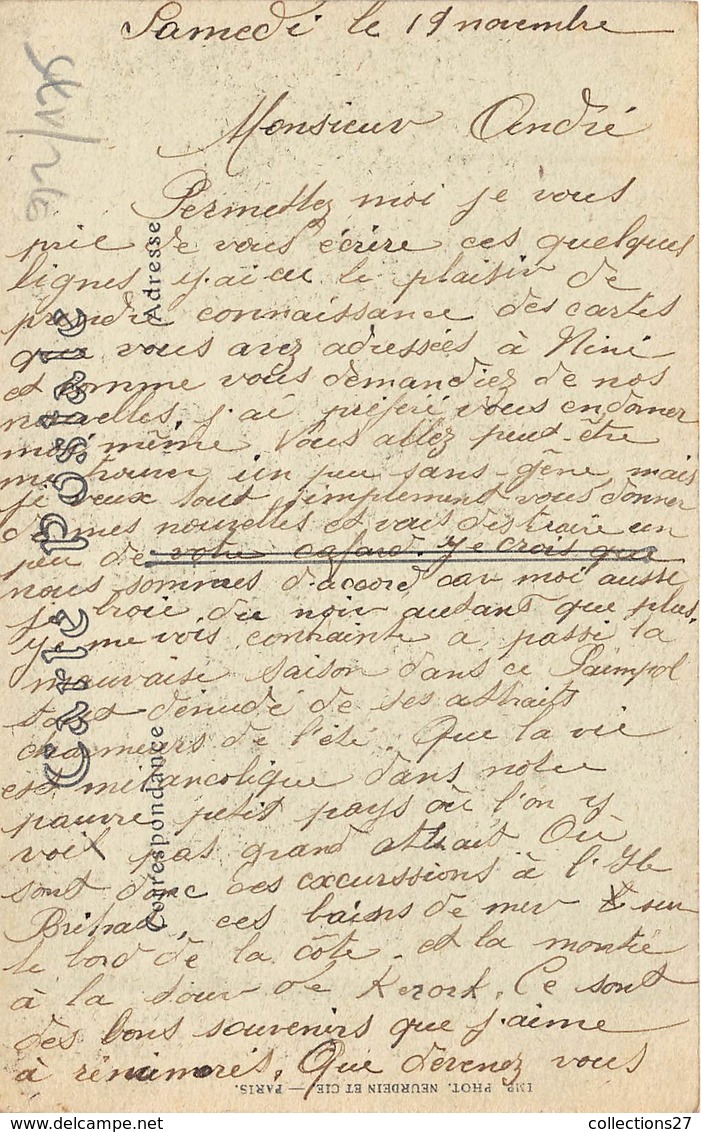 Samedi le 19 novembre
Monsieur André
Permettez moi je vous
prie de vous écrire ces quelques
lignes j'ai eu le plaisir de
prendre connaissance des cartes
que vous avez adressées à Nini
et comme vous demandiez de nos
nouvelles j'ai préféré vous en donner
moi même. Vous allez peut-être
me trouver un peu sans-gêne, mais
je veux tout simplement vous donner
de mes nouvelles et vais distraire un
peu de votre cafard. Je crois que
nous sommes d'accord car moi aussi
je broie du noir autant que plus.
Je me vois contrainte a passé la
mauvaise saison dans ce Paimpol
tout dénudé de ses attraits
charmeurs de l'été. Que la vie
est mélancolique dans notre
pauvre petit pays où l'on y
voit pas grand attrait Où
sont donc ces excurssions à l'Ile
Bréhat, ces bains de mer sur
le bord de la côte et la montée
à la tour de Kerork. Ce sont
des bons souvenirs que j'aime
à rémimorés. Que devenez vous
Carte Postale
Correspondance
Adresse
IMP. PHOT. NEURDEIN ET CIE. — PARIS.
collections27